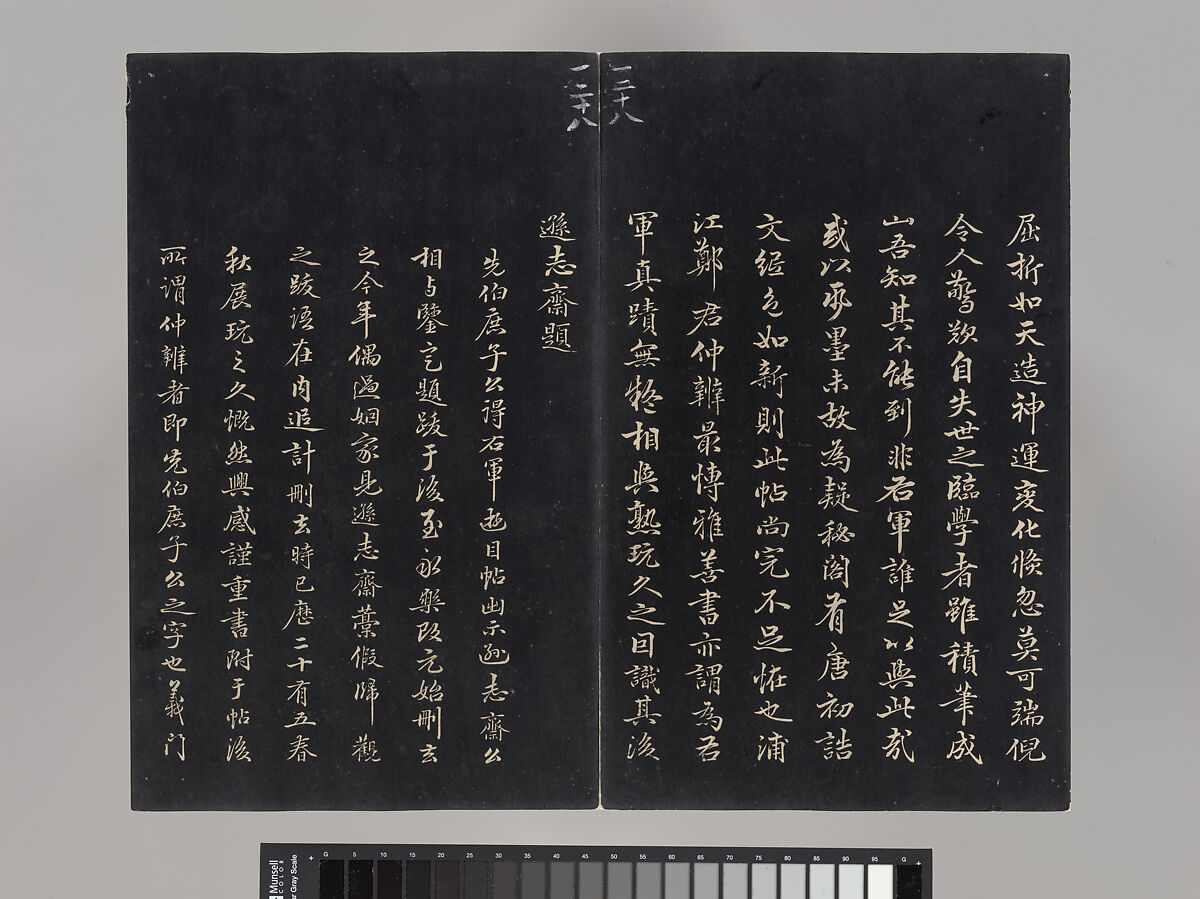 屈折如天造神運變化倏忽莫可端倪
令人驚歎自失世之臨學者雖積筆成
山吾知其不能到非右軍誰足以與此哉
或以爲墨未故為疑秘閣有唐初誥
文縆色如新則此帖尚完不足恠也浦
江鄭君仲辨最慱雅善書亦謂為右
軍真蹟無疑相與熟玩久之因識其後
遜志齋題
先伯庶子公得右軍遊目帖出示遜志齋公
相与鑒定題跋于後至永樂改元始刪去
之今年偶過姻家見遜志齋藁假歸觀
之跋語在內追計刪去時已歷二十有五春
秋展玩之久慨然興感謹重書附于帖後
所謂仲辨者即先伯庶子公之字也義门
一二十八
一二十八
Munsell
Gray Scale
G 5 10 15 20 25 30 35 40 45 50 55 60 65 70 75 80 85 90 95 G